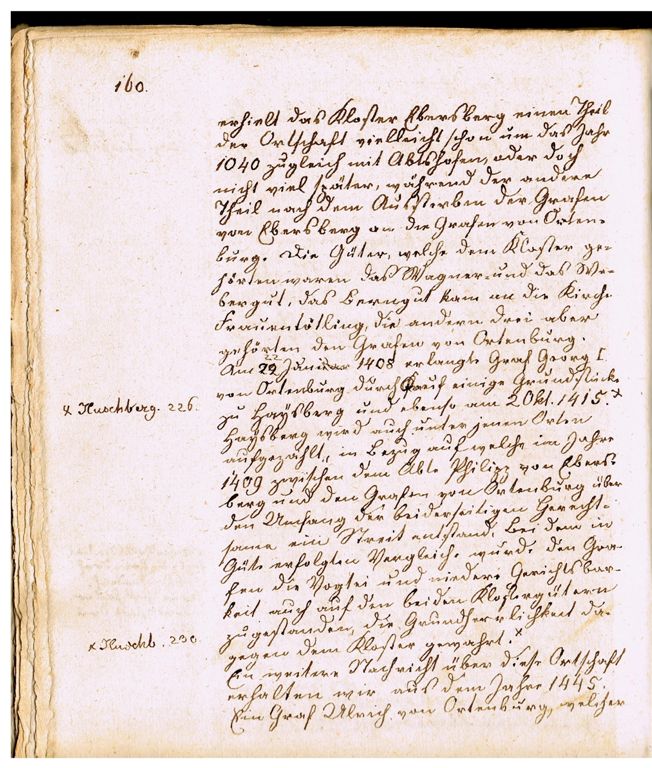 160.
erhielt das Kloster Ebersberg einen Theil
der Ortschaft vielleicht schon um das Jahr
1040 zugleich mit Abtshofen, oder doch
nicht viel später, während der andere
Theil nach dem Aussterben der Grafen
von Ebersberg an die Grafen von Orten-
burg. Die Güter, welche dem Kloster ge-
hörten waren das Wagner- und das We-
bergut, das Berngut kam an die Kirche
Frauentötling, die andern drei aber
gehörten den Grafen von Ortenburg.
Am 22 1408 erlangte Graf Georg I.
von Ortenburg durch Kauf einige Grundstücke
zu Haysberg und ebenso am 2 Okt. 1415.x
x Huschberg. 226.
Haysberg wird auch unter jenen Orten
aufgezählt, in Bezug auf welche im Jahre
1499 zwischen dem Abte Philipp von Ebers-
berg und den Grafen von Ortenburg über
den Umfang der beiderseitigen Gerecht-
same ein Streit entstand. Bei dem in
Güte erfolgten Vergleiche wurde den Gra-
fen die Vogtei und niedere Gerichtsbar-
keit auch auf den beiden Klostergütern
zugestanden, die Grundherrlichkeit da-
gegen dem Kloster gewahrt.x
x Huschb. 230.
Ein weitere Nachricht über diese Ortschaft
erhalten wir aus dem Jahre 1445.
Ein Graf Ulrich von Ortenburg, welcher